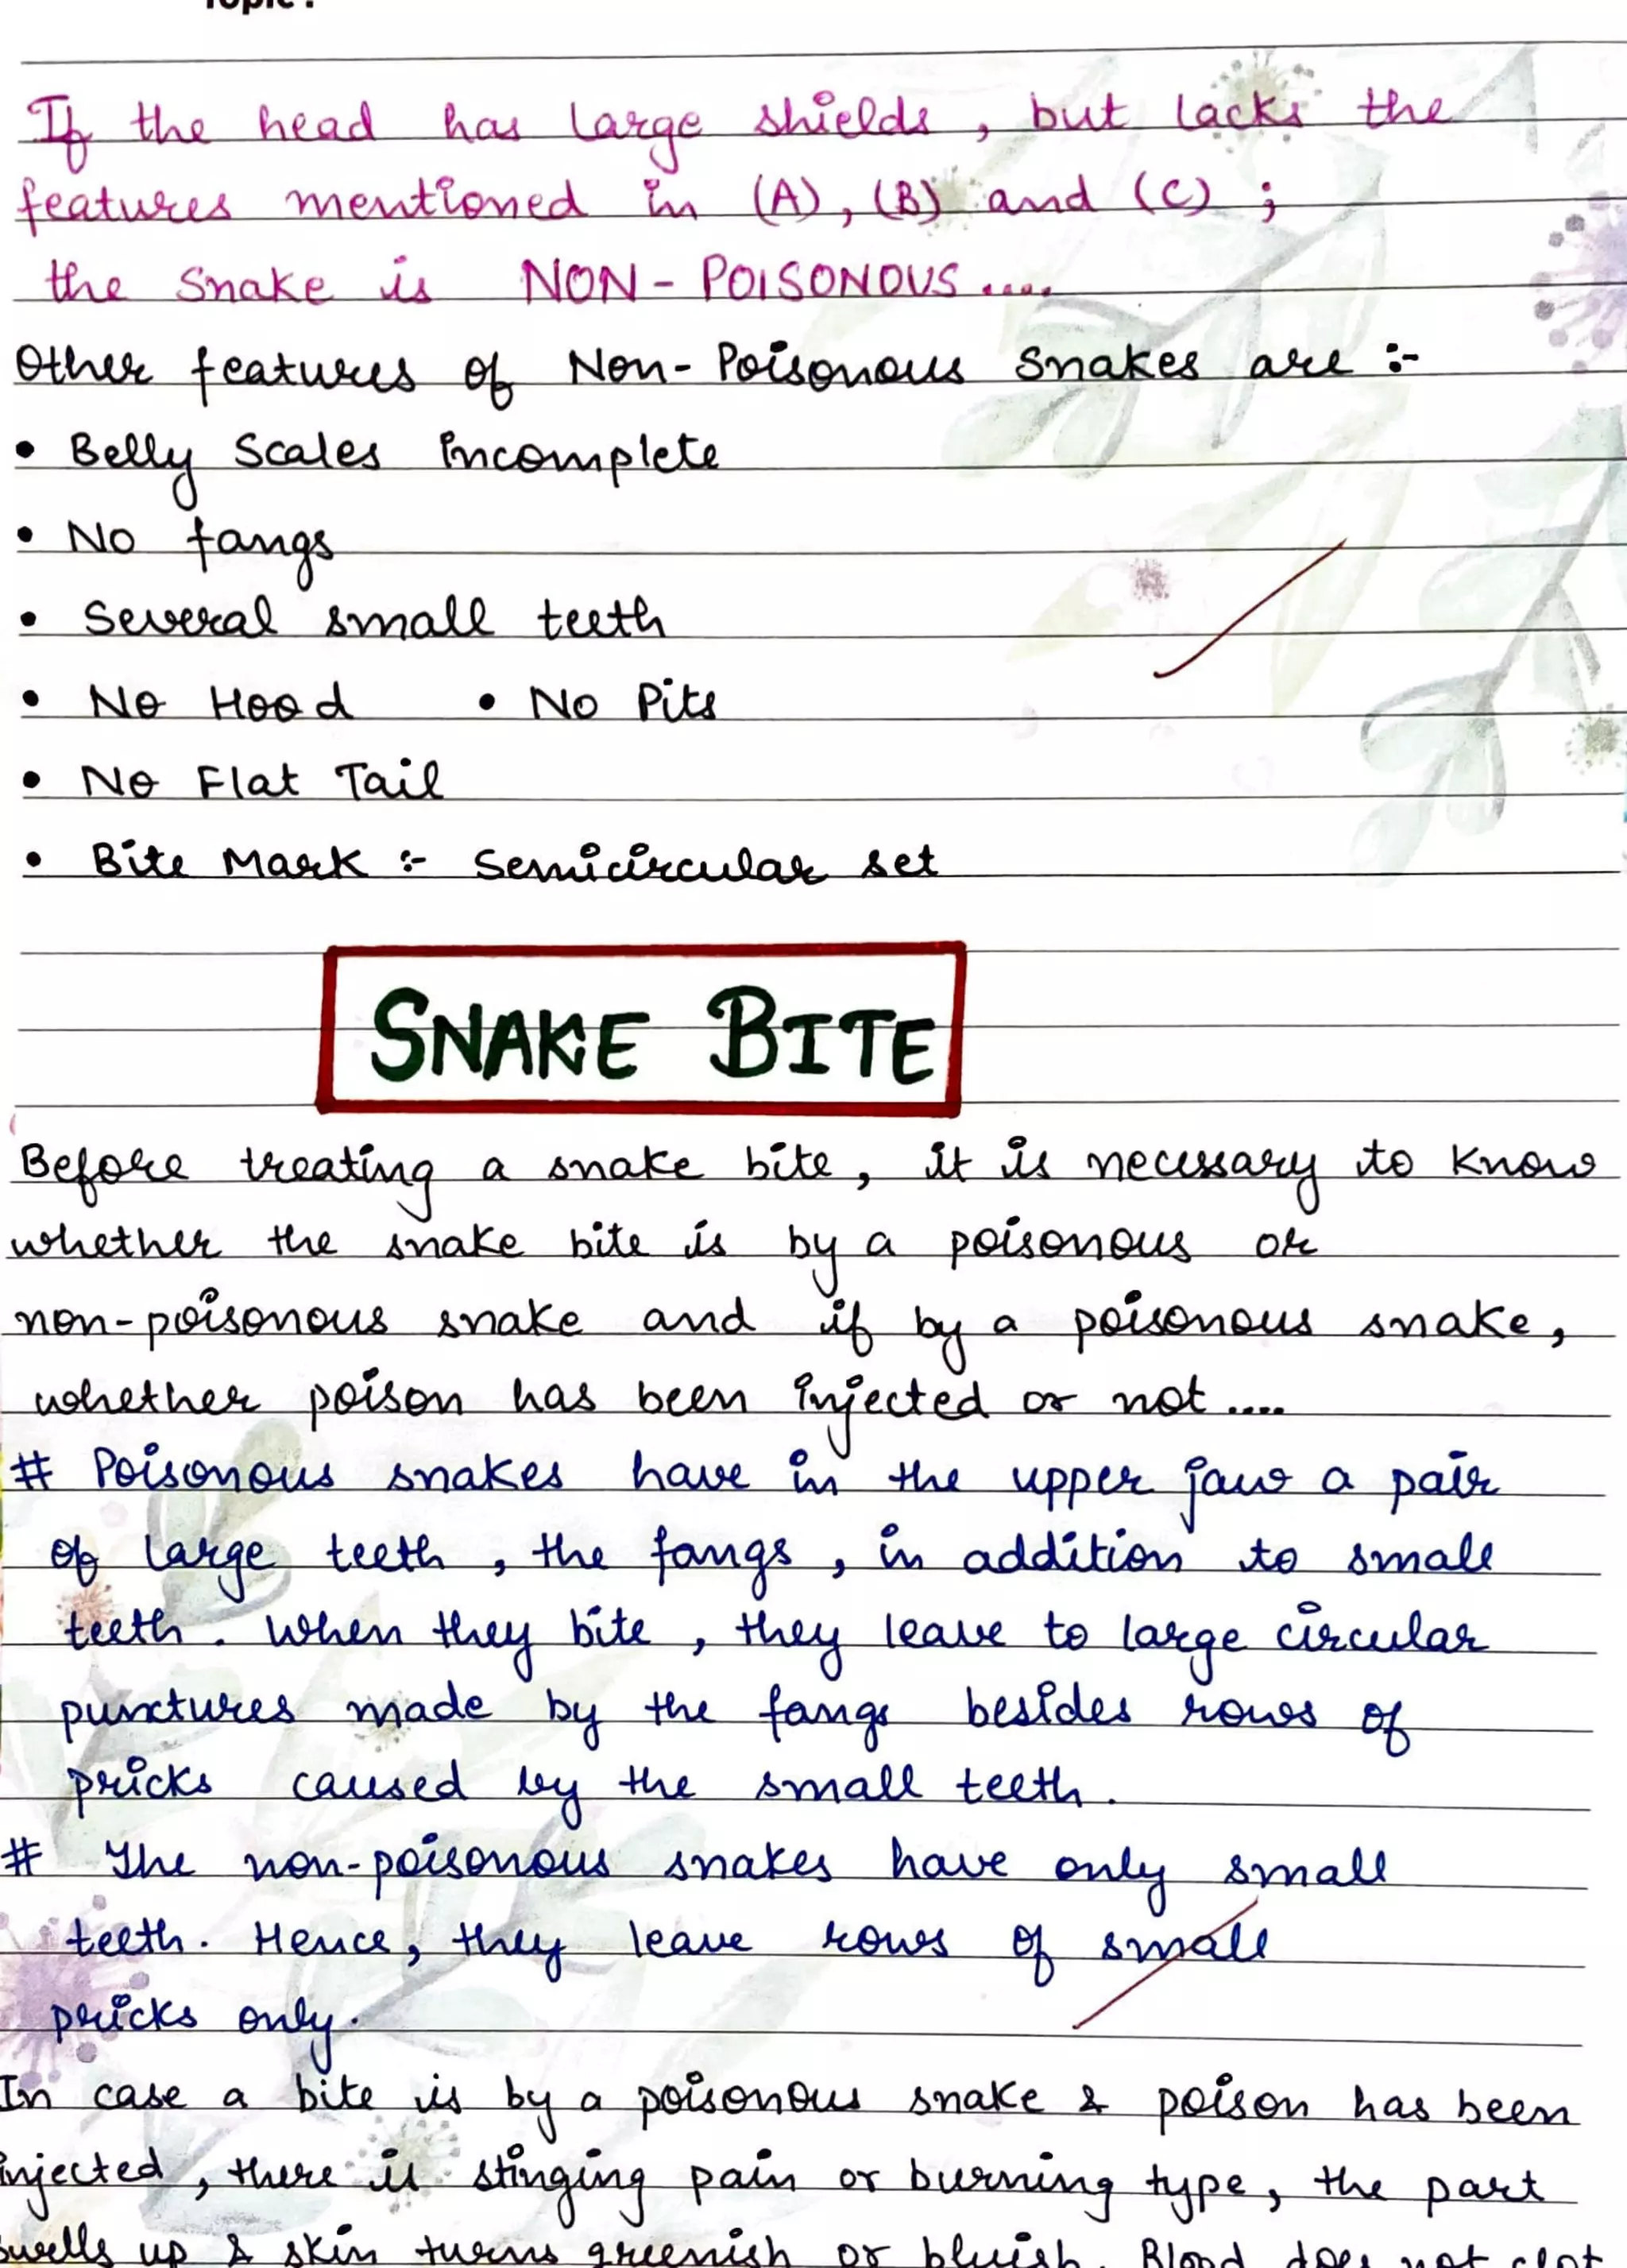 Topic :
If the head has large shields, but lacks the
features mentioned in (A), (B) and (C) ;
the Snake is NON - POISONOUS ....
Other features of Non-Poisonous Snakes are :-
• Belly Scales incomplete
• No fangs
• Several small teeth
• No Hood • No Pits
• No Flat Tail
• Bite Mark :- Semicircular set
SNAKE BITE
Before treating a snake bite, it is necessary to know
whether the snake bite is by a poisonous or
non-poisonous snake and if by a poisonous snake,
whether poison has been injected or not ....
# Poisonous snakes have in the upper jaw a pair
of large teeth, the fangs, in addition to small
teeth. When they bite, they leave to large circular
punctures made by the fangs besides rows of
pricks caused by the small teeth.
# The non-poisonous snakes have only small
teeth. Hence, they leave rows of small
pricks only.
In case a bite is by a poisonous snake & poison has been
injected, there is stinging pain or burning type, the part
swells up & skin turns greenish or bluish. Blood does not clot